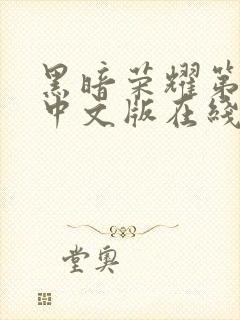 黑暗荣耀第
中文版在线
堂奥